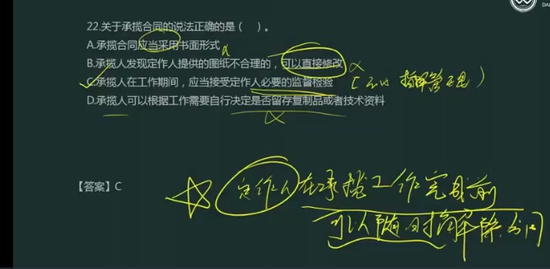 22.关于承揽合同的说法正确的是（ ）。
A.承揽合同应当采用书面形式
B.承揽人发现定作人提供的图纸不合理的，可以直接修改
C.承揽人在工作期间，应当接受定作人必要的监督检验
D.承揽人可以根据工作需要自行决定是否留存复制品或者技术资料
【答案】C
定作人在承揽工作完成前
可以随时解除合同